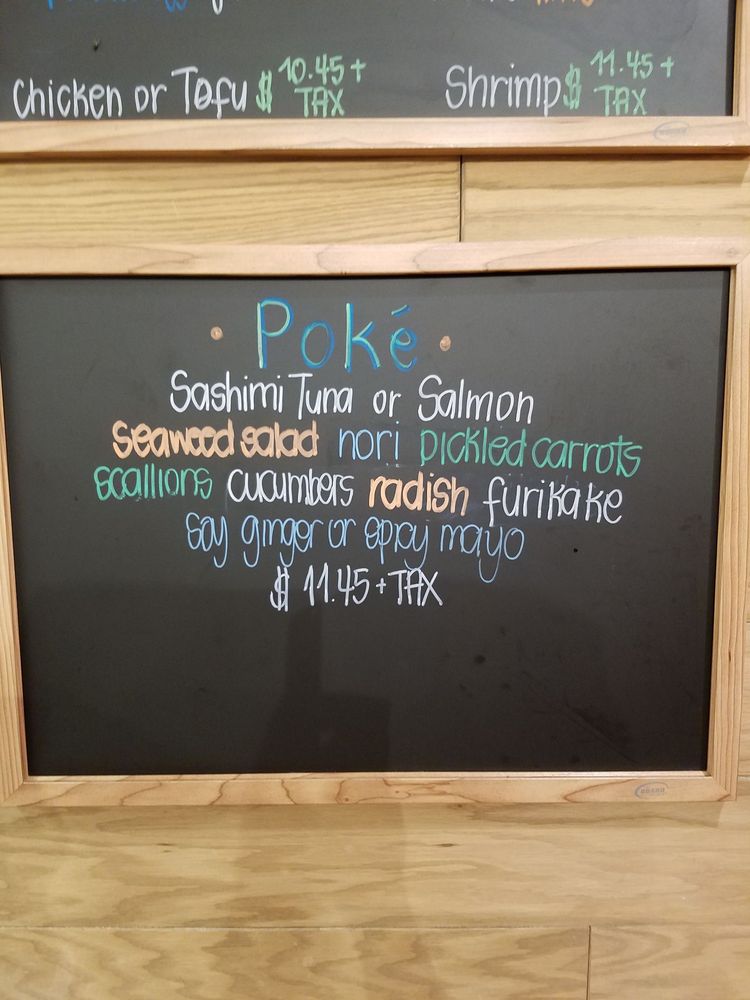 Chicken or Tofu $ 10.45 + TAX
Shrimp $ 11.45 + TAX
Poké
Sashimi Tuna or Salmon
seaweed salad nori pickled carrots
scallions cucumbers radish furikake
soy ginger or spicy mayo
$ 11.45 + TAX